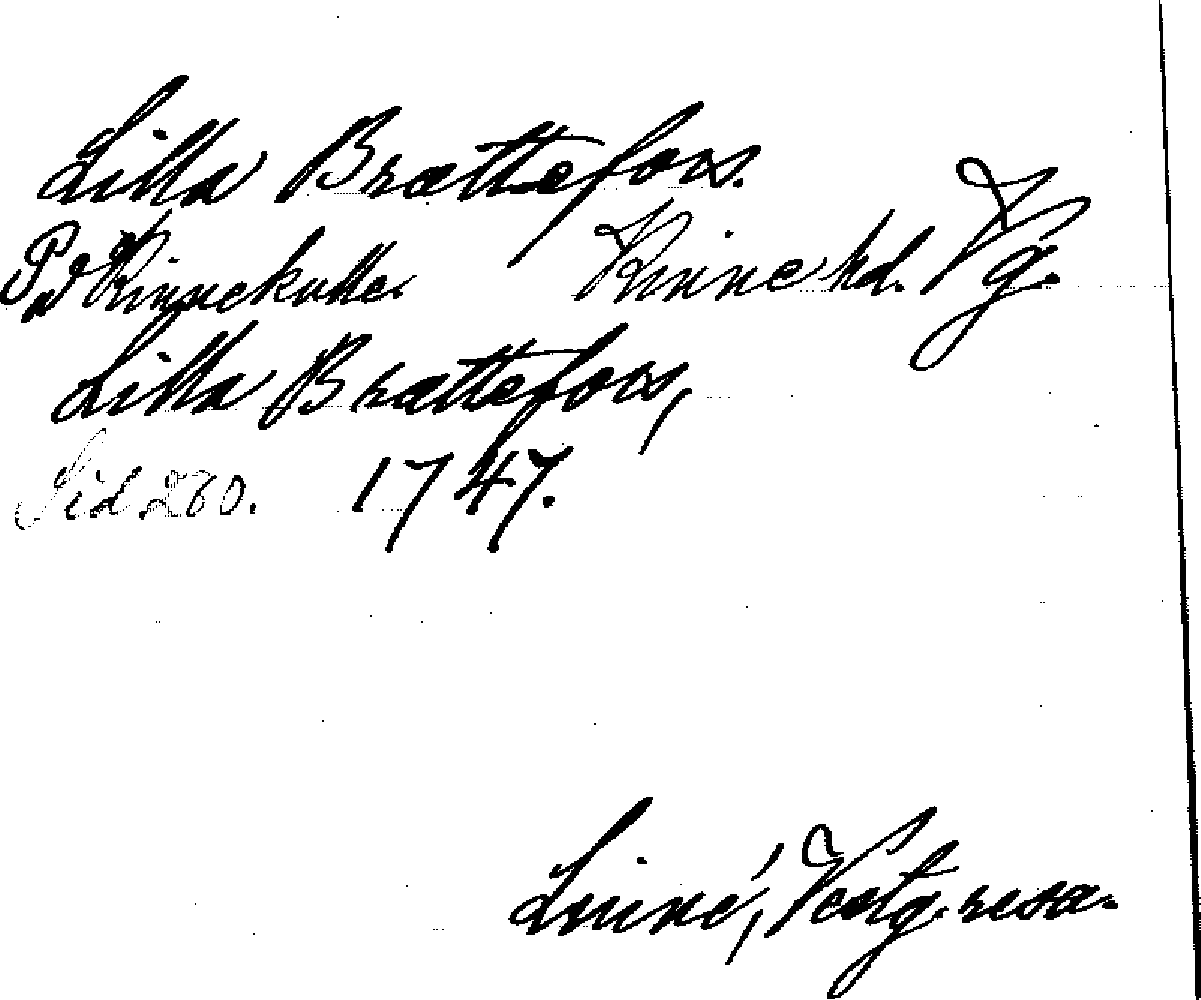 Lilla Brattefors.
På Kinnekulle. Kinne hd. Vg.
Lilla Brattefors,
Sid 260. 1747.
Linné, Vestg. resa.